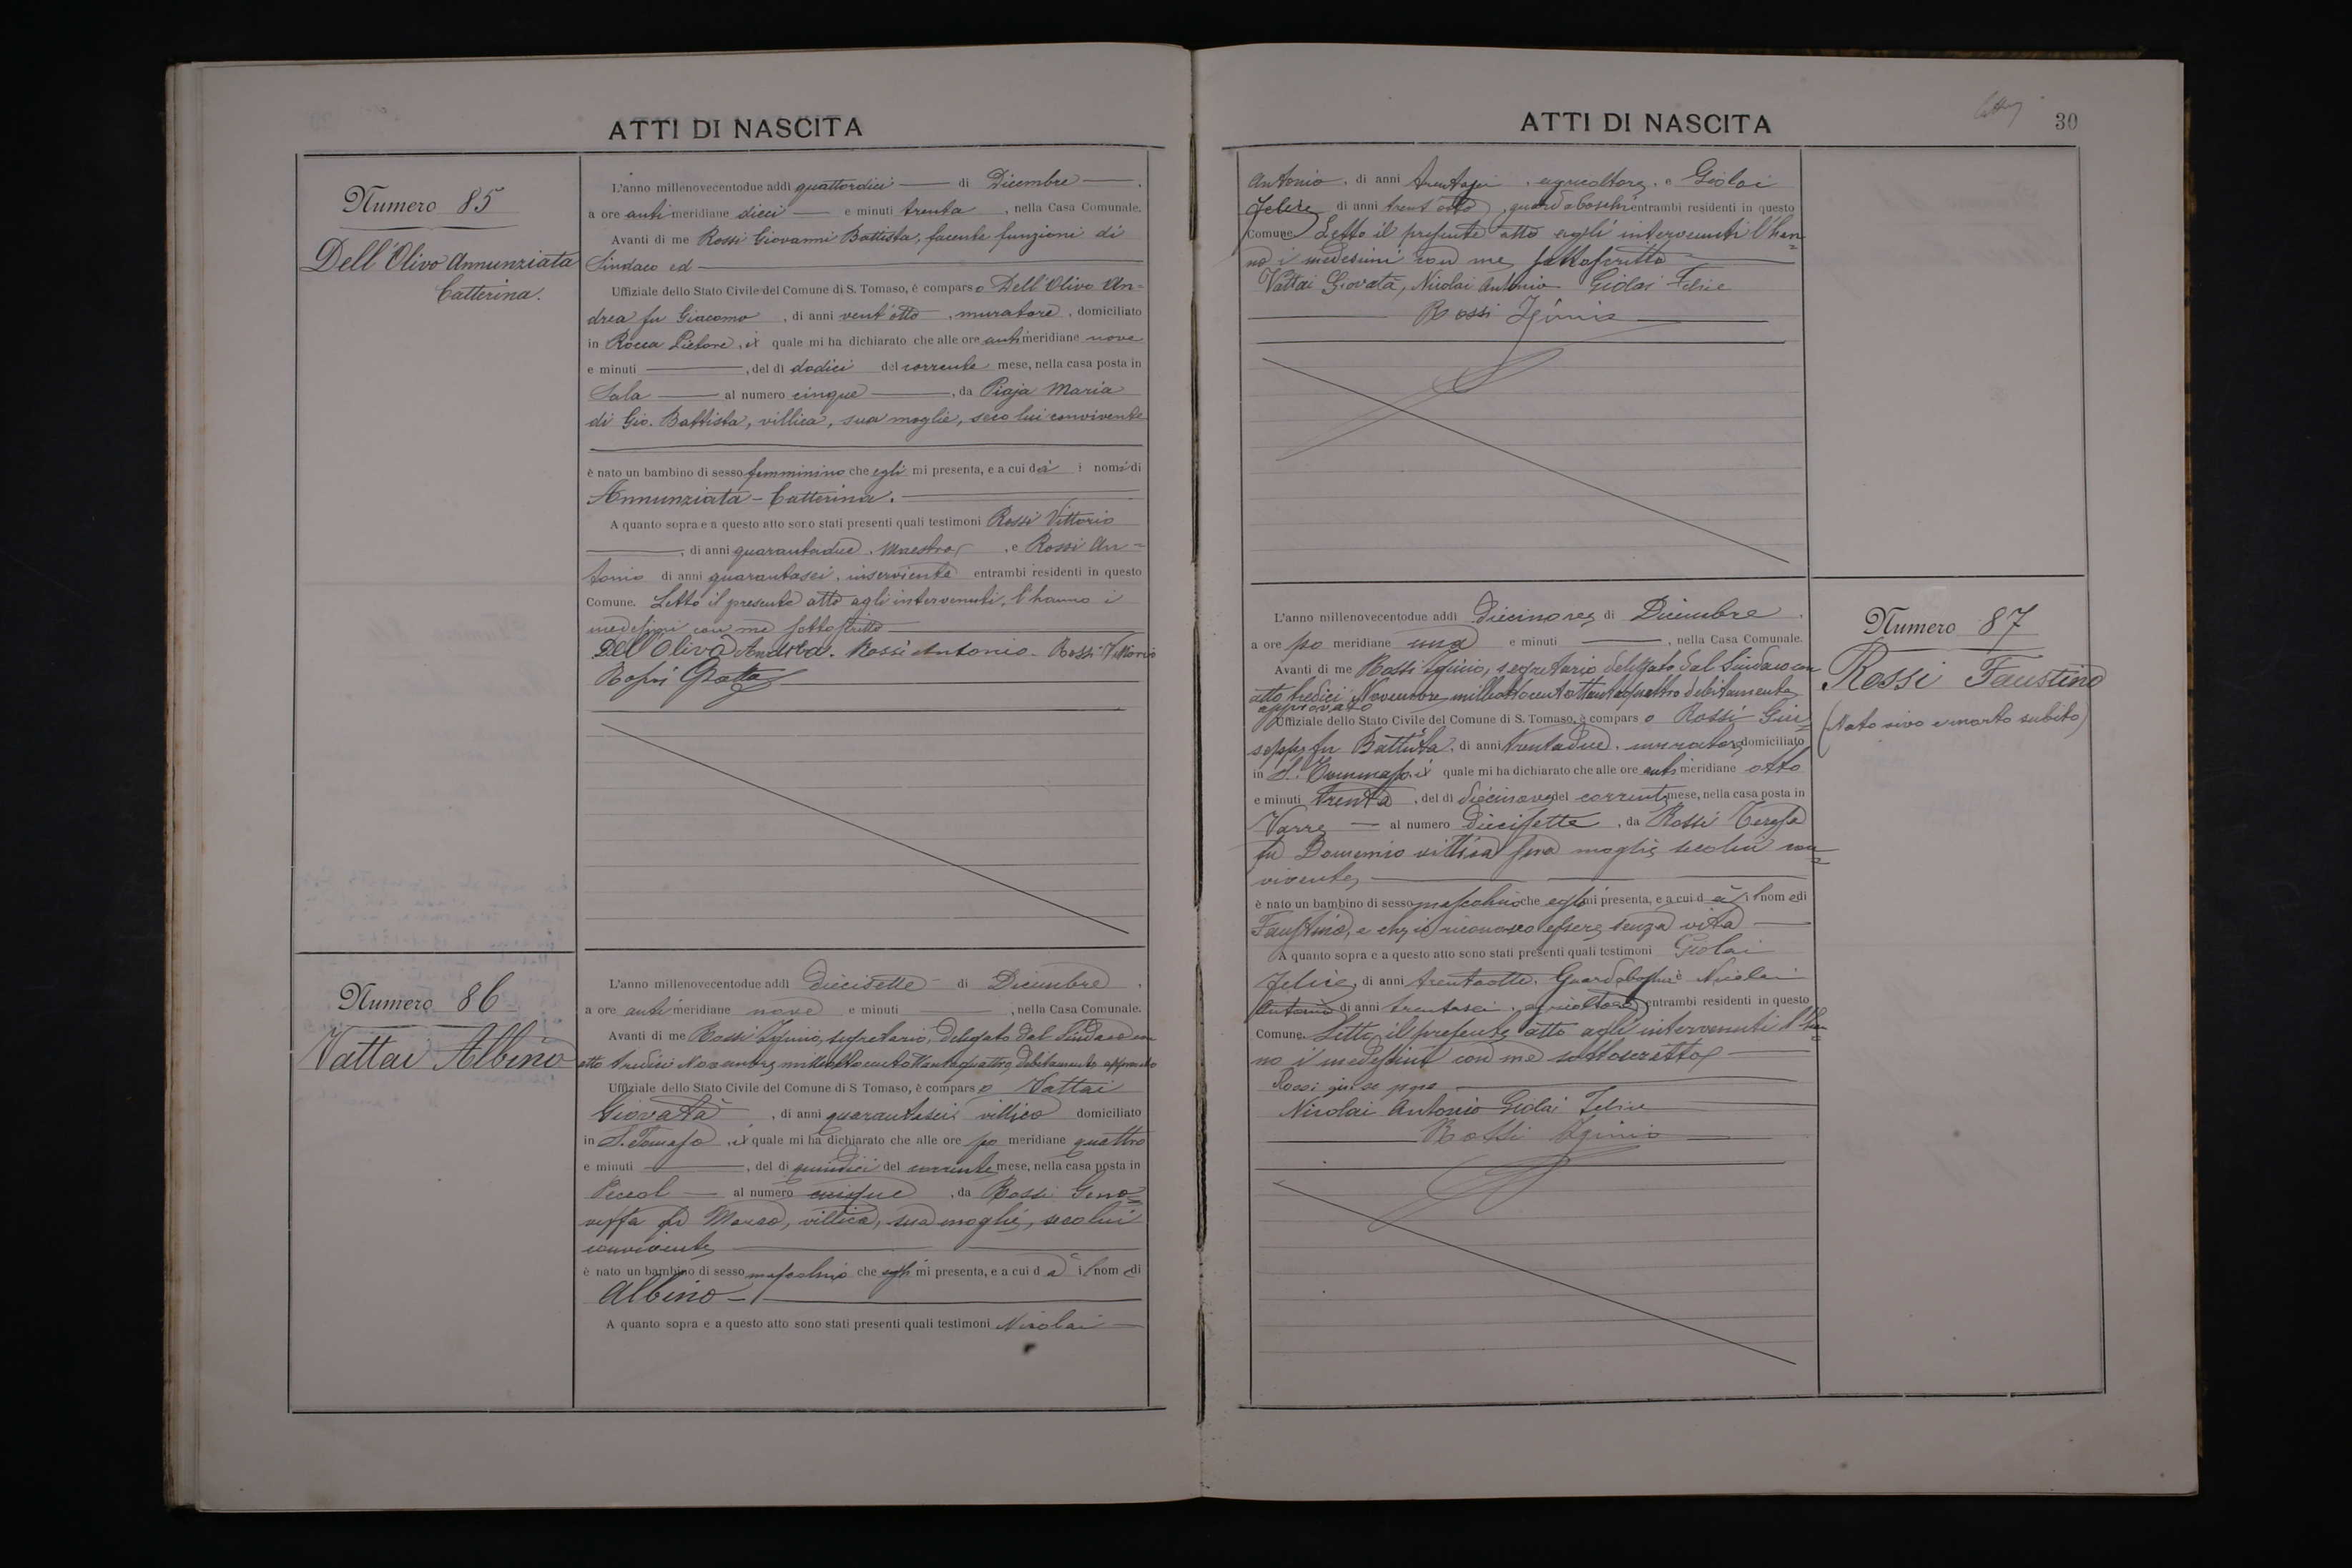 ATTI DI NASCITA
Numero 85
Dell'Olivo Annunziata
Catterina.
L'anno millenovecentodue addì quattordici — di Dicembre —.
a ore antimeridiane dieci — e minuti trenta, nella Casa Comunale.
Avanti di me Rossi Giovanni Battista, facente funzioni di
Sindaco ed —
Uffiziale dello Stato Civile del Comune di S. Tomaso, è comparso Dell'Olivo An=
drea fu Giacomo, di anni vent'otto, muratore, domiciliato
in Rocca Pietore, il quale mi ha dichiarato che alle ore antimeridiane nove
e minuti —, del dì dodici del corrente mese, nella casa posta in
Sala — al numero cinque —, da Piaja Maria
di Gio. Battista, villica, sua moglie, seco lui convivente
è nato un bambino di sesso femminino che egli mi presenta, e a cui dà i nomi di
Annunziata - Catterina. —
A quanto sopra e a questo atto sono stati presenti quali testimoni Rossi Vittorio
—, di anni quarantadue, Maestro, e Rossi An=
tonio di anni quarantasei, inserviente entrambi residenti in questo
Comune. Letto il presente atto agli intervenuti, l'hanno i
medesimi con me sottoscritto —
Dell Olivo Andrea. Rossi Antonio. Rossi Vittorio
Rossi
Numero 86
Vattai Albino
L'anno millenovecentodue addì diecisette — di Dicembre.
a ore antimeridiane nove e minuti —, nella Casa Comunale.
Avanti di me Rossi Iginio, segretario, delegato dal Sindaco con
atto tredici Novembre milleottocentottantaquattro, debitamente approvato
Uffiziale dello Stato Civile del Comune di S Tomaso, è comparso Vattai
Giovatà, di anni quarantasei, villico domiciliato
in S. Tomaso, il quale mi ha dichiarato che alle ore pomeridiane quattro
e minuti —, del dì quindici del corrente mese, nella casa posta in
Pecol — al numero cinque, da Rossi Geno=
veffa di Marco, villica, sua moglie, seco lui
convivente —
è nato un bambino di sesso maschino che egli mi presenta, e a cui dà il nome di
Albino —
A quanto sopra e a questo atto sono stati presenti quali testimoni Nicolai —
ATTI DI NASCITA
30
Antonio, di anni trentasei, agricoltore, e Giolai
Felice di anni trent'otto, guardaboschi entrambi residenti in questo
Comune. Letto il presente atto agli intervenuti l'han=
no i medesimi con me sottoscritto —
Vattai Giovatà, Nicolai Antonio Giolai Felice
Rossi Iginio
Numero 87
Rossi Faustino
(Nato vivo e morto subito)
L'anno millenovecentodue addì diecinove di Dicembre.
a ore pomeridiane una e minuti —, nella Casa Comunale.
Avanti di me Rossi Iginio, segretario delegato dal Sindaco con
atto tredici Novembre milleottocentottantaquattro debitamente
approvato
Uffiziale dello Stato Civile del Comune di S. Tomaso, è comparso Rossi Giu=
seppe fu Battista, di anni trentadue, muratore domiciliato
in S. Tommaso, il quale mi ha dichiarato che alle ore antimeridiane otto
e minuti trenta, del dì diecinove del corrente mese, nella casa posta in
Varre — al numero diecisette, da Rossi Teresa
fu Domenico villica sua moglie seco lui con=
vivente, —
è nato un bambino di sesso mascolino che egli mi presenta, e a cui dà il nome di
Faustino, e che io riconosco essere senza vita —
A quanto sopra e a questo atto sono stati presenti quali testimoni Giolai
Felice, di anni trentaotto, Guardaboschi e Nicolai
Antonio di anni trentasei, agricoltore entrambi residenti in questo
Comune. Letto il presente atto agli intervenuti l'han=
no i medesimi con me sottoscritto —
Rossi giuseppe
Nicolai Antonio Giolai Felice
Rossi Iginio